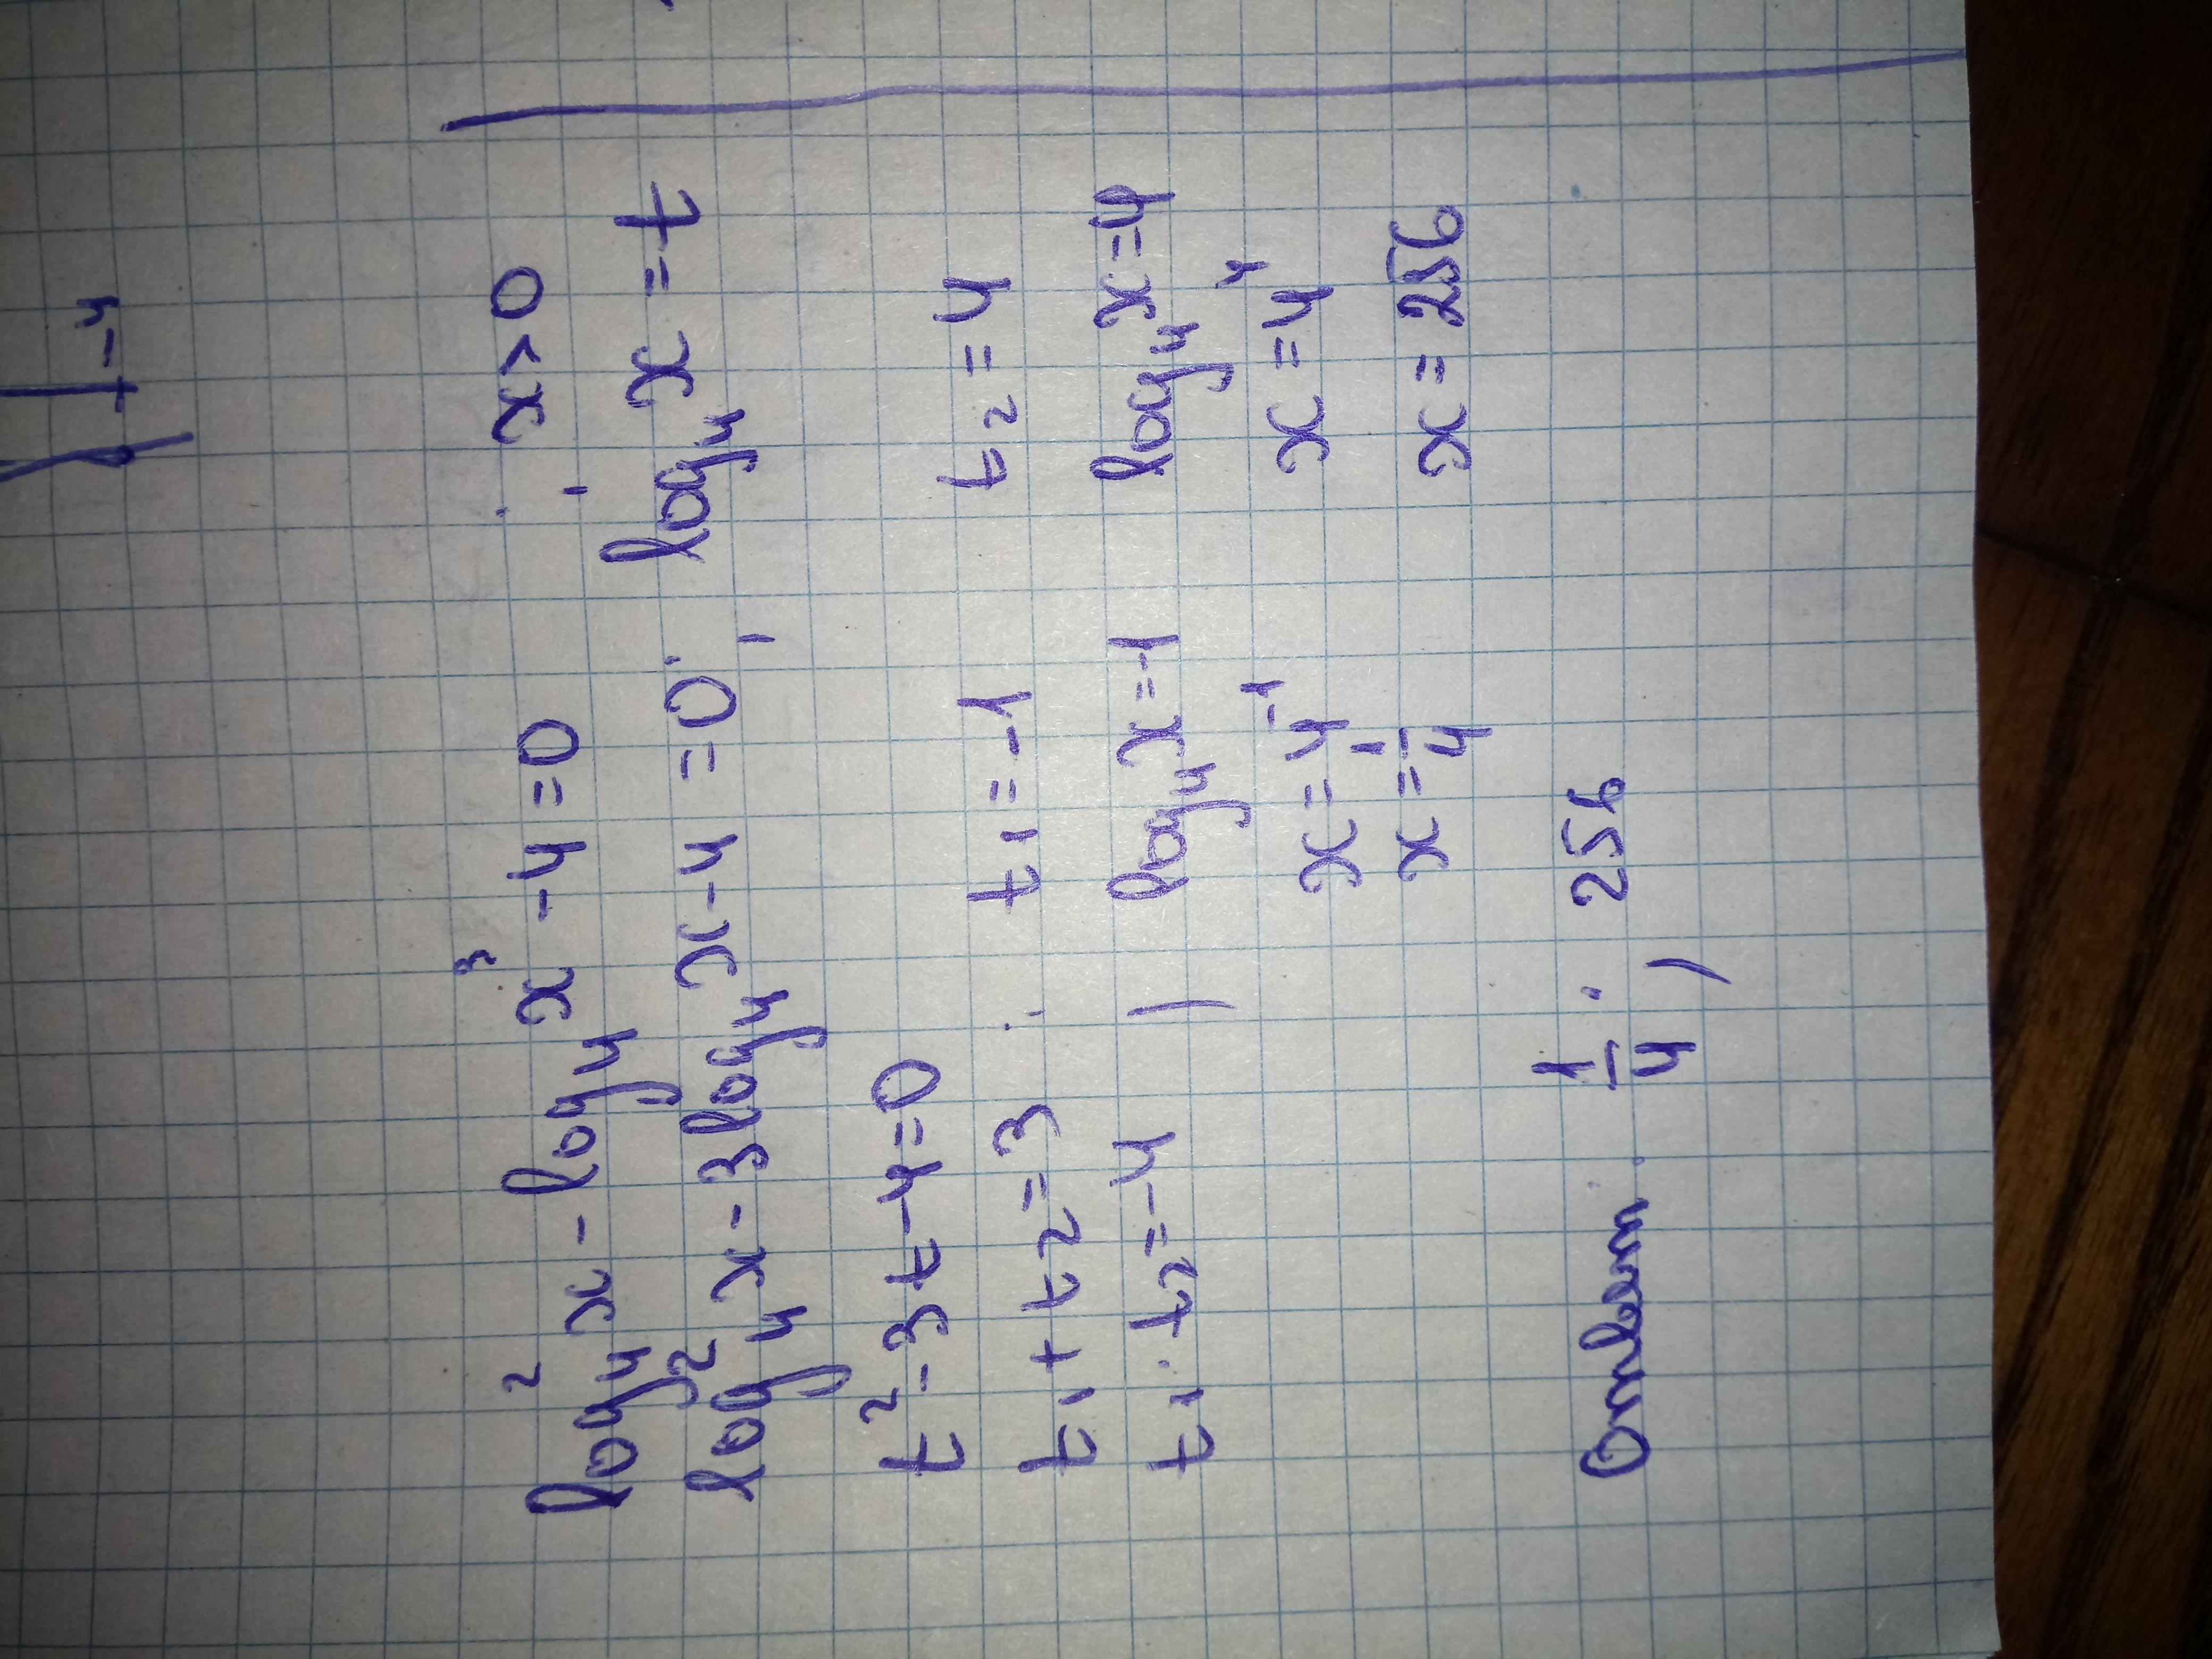 -4
log₄²x - log₄x³ - 4 = 0; x>0
log₄²x - 3log₄x - 4 = 0; log₄x = t
t² - 3t - 4 = 0
t₁ + t₂ = 3 ; t₁ = -1 t₂ = 4
t₁ · t₂ = -4 log₄x = -1 log₄x = 4
x = 4⁻¹ x = 4⁴
x = 1/4 x = 256
Ответ. 1/4 ; 256